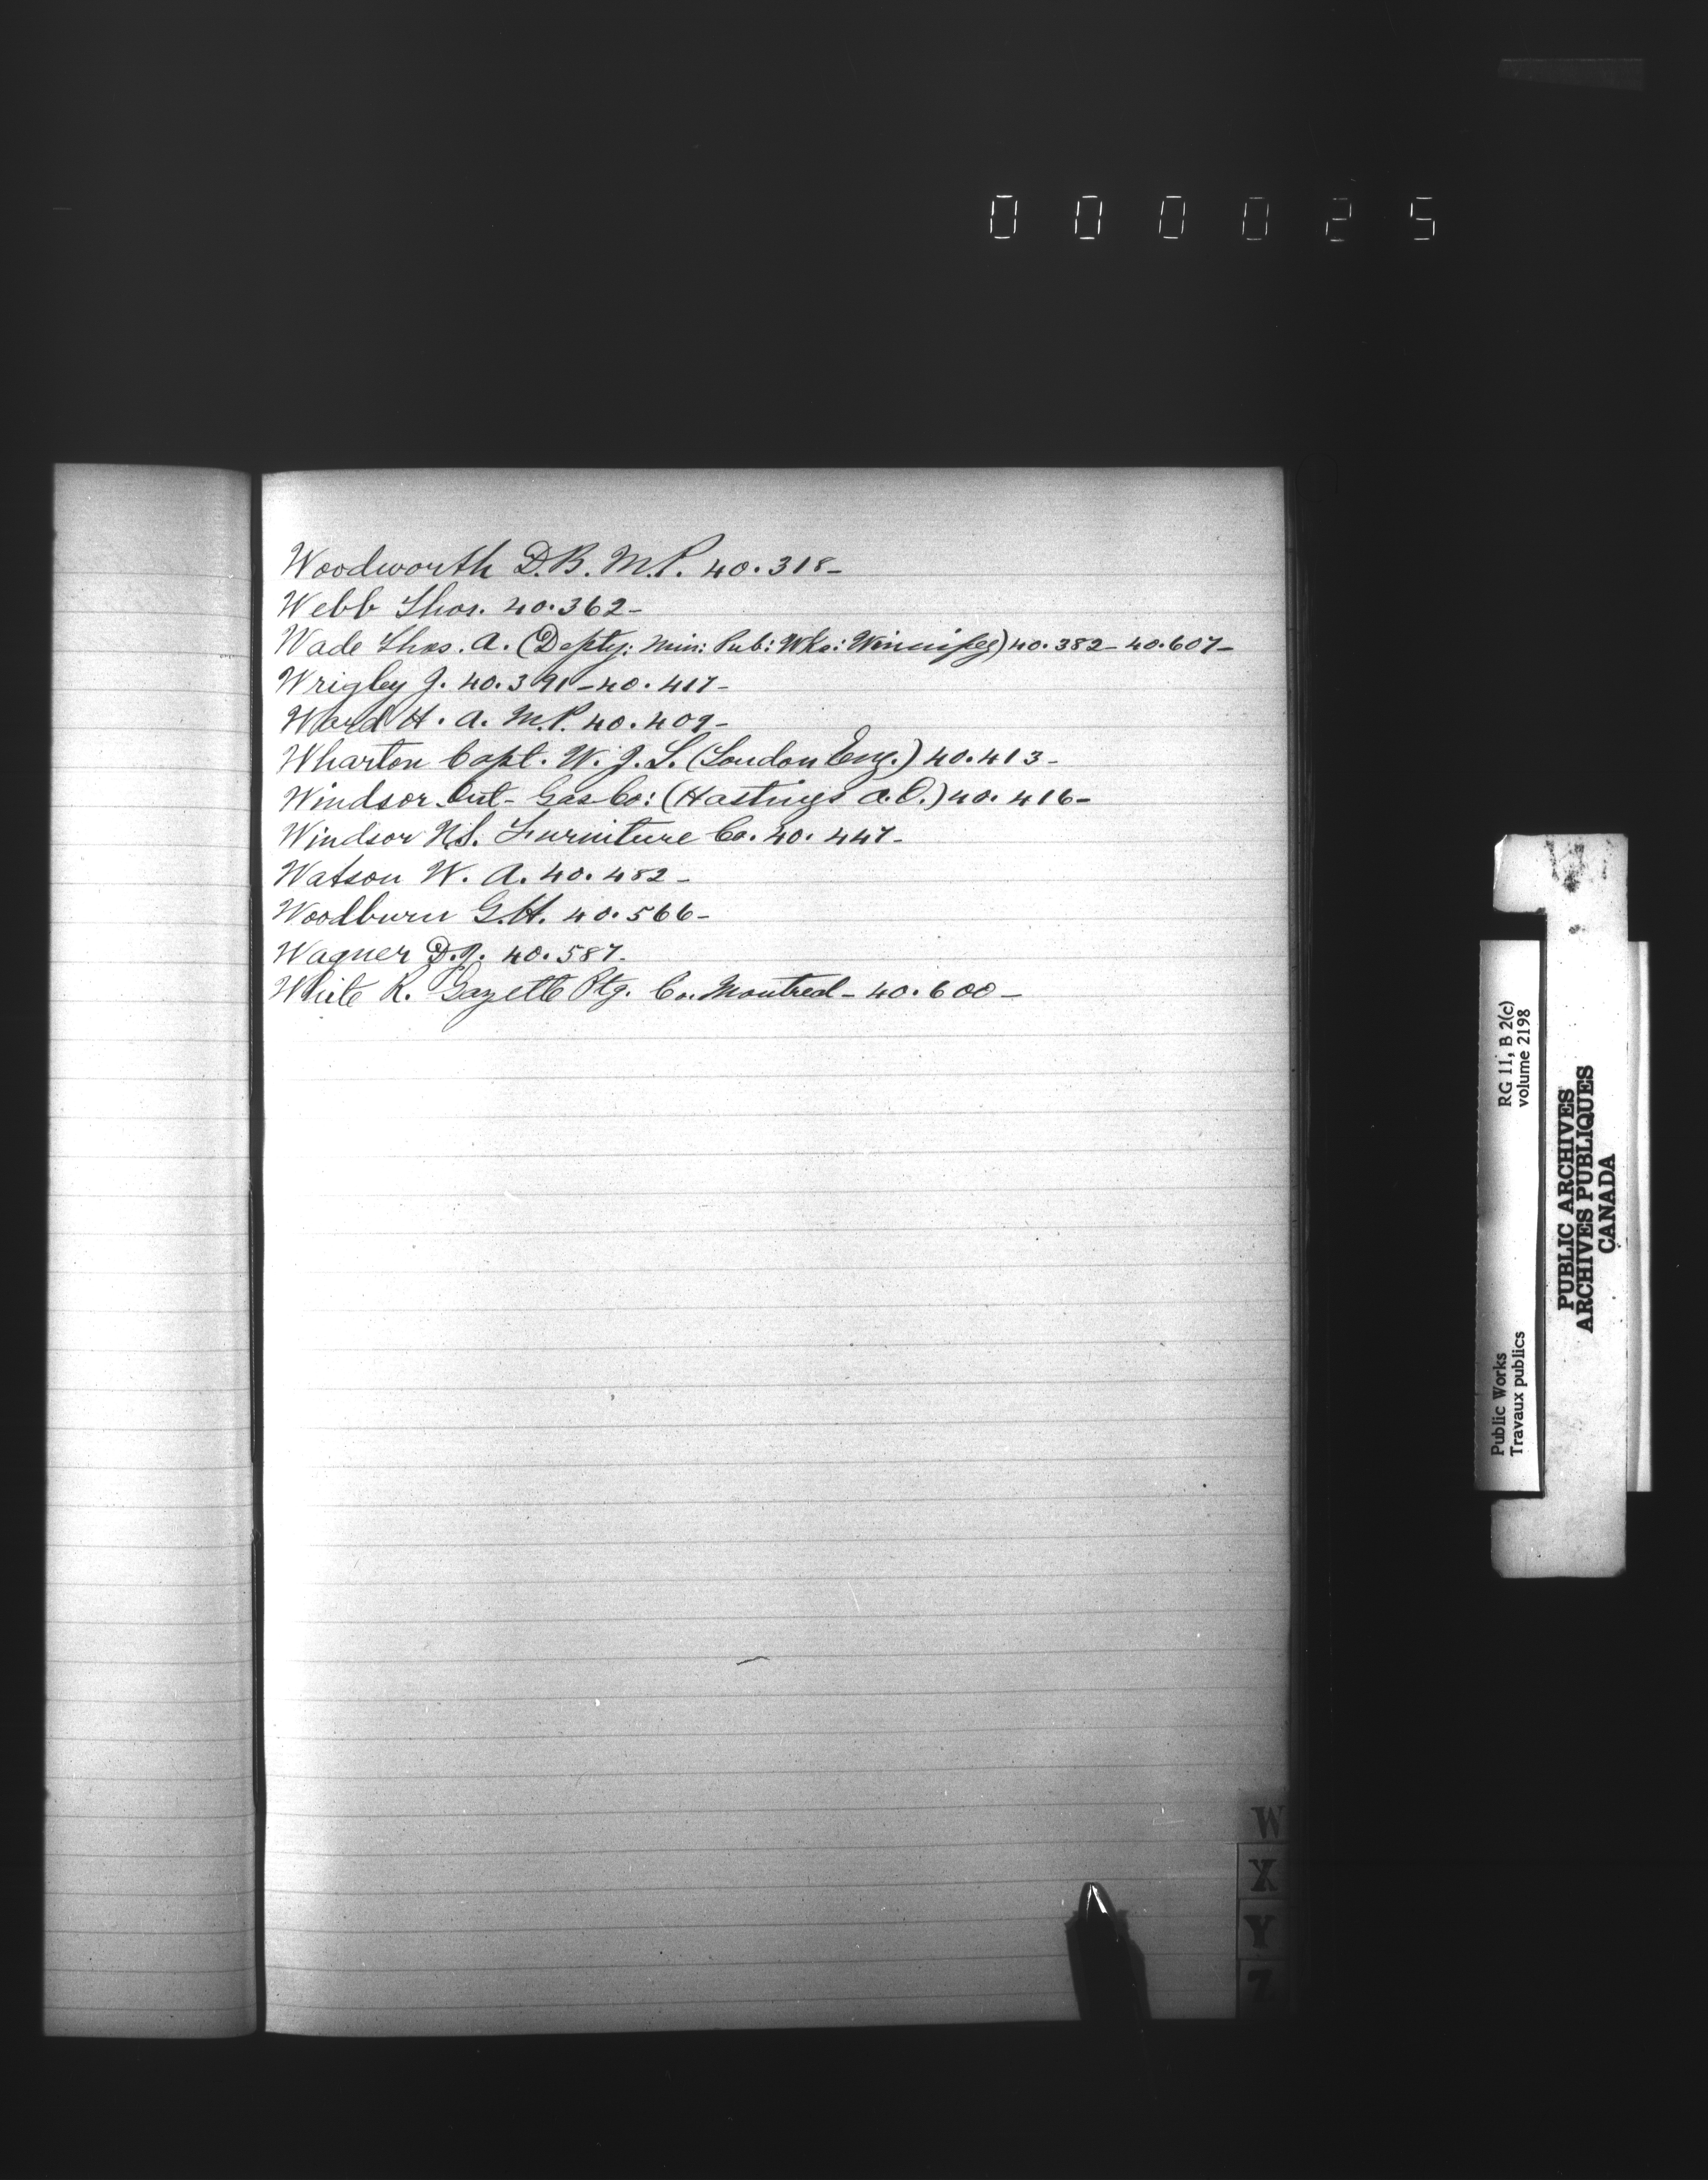 000025
Woodworth D.B. M.P. 40.318-
Webb Thos. 40.362-
Wade Thos. A. (Depty: Min: Pub: Wks: Winnipeg) 40.382- 40.607-
Wrigley J. 40.391-40.417-
Ward H. A. M.P. 40.409-
Wharton Capt. W. J. L. (London Eng.) 40.413-
Windsor Ont- Gas Co: (Hastings A.O.) 40.416-
Windsor N.S. Furniture Co. 40.447-
Watson W. A. 40.482-
Woodburn G.H. 40.566-
Wagner D.J. 40.587-
White R. Gazette Ptg. Co. Montreal- 40.600-
W
X
Y
Z
RG 11, B 2(c)
volume 2198
Public Works
Travaux publics
PUBLIC ARCHIVES
ARCHIVES PUBLIQUES
CANADA